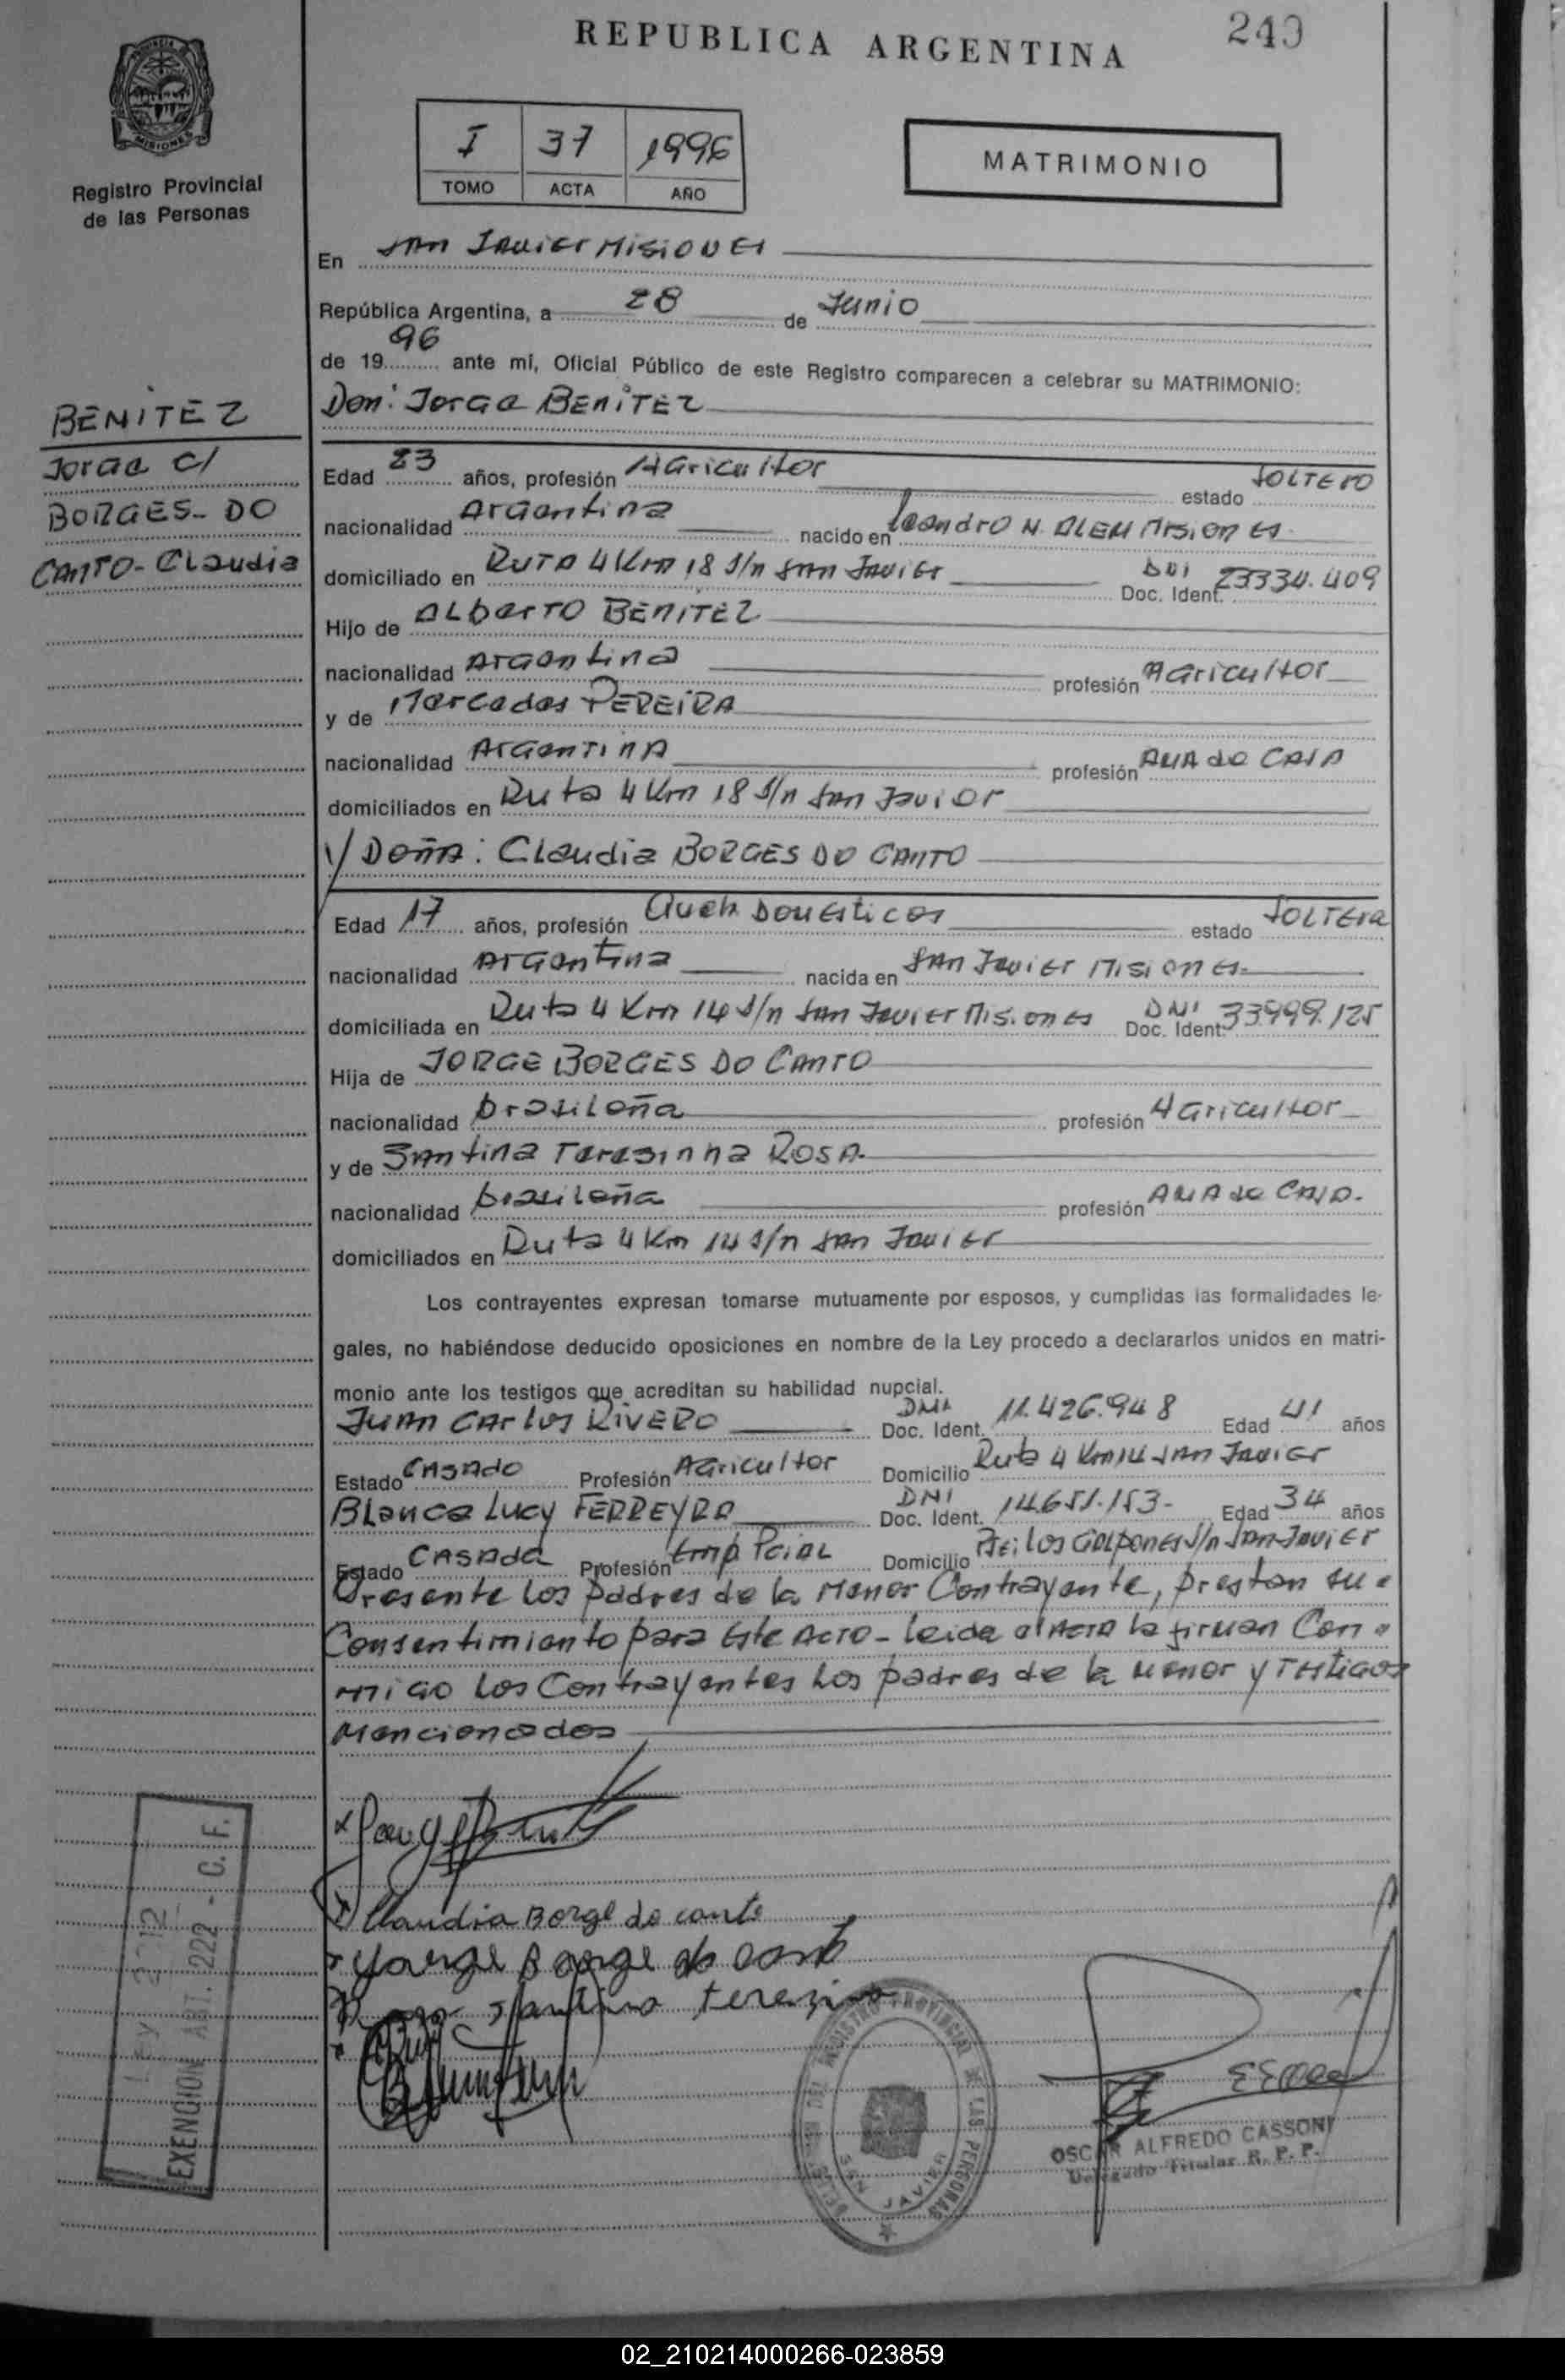 REPUBLICA ARGENTINA
240
PROVINCIA DE MISIONES
Registro Provincial
de las Personas
I 37 1996
TOMO ACTA AÑO
MATRIMONIO
En SAN JAVIER MISIONES
República Argentina, a 28 de Junio
de 1996 ante mí, Oficial Público de este Registro comparecen a celebrar su MATRIMONIO:
BENITEZ
Jorge c/
BORGES- DO
CANTO- Claudia
Don: Jorge BENITEZ
Edad 23 años, profesión Agricultor estado SOLTERO
nacionalidad Argentina nacido en Leandro N. ALEM MISIONES
domiciliado en RUTA 4 Km 18 S/n SAN JAVIER DNI Doc. Ident. 23334.409
Hijo de ALberTO BENITEZ
nacionalidad Argentina profesión Agricultor
y de Mercedes PEREIRA
nacionalidad ArgenTINA profesión AMA de CASA
domiciliados en Ruta 4 Km 18 S/n San Javier
Y/ DOÑA: Claudia BORGES DO CANTO
Edad 17 años, profesión Queh. Domesticos estado SOLTEra
nacionalidad Argentina nacida en SAN Javier Misiones-
domiciliada en Ruta 4 Km 14 S/n San Javier Misiones DNI Doc. Ident. 33999.125
Hija de JORGE BORGES DO CANTO
nacionalidad brasileña profesión Agricultor
y de Santina Teresinha ROSA.
nacionalidad brasileña profesión AMA de CASA.
domiciliados en Ruta 4 Km 14 S/n San Javier
Los contrayentes expresan tomarse mutuamente por esposos, y cumplidas las formalidades le-
gales, no habiéndose deducido oposiciones en nombre de la Ley procedo a declararlos unidos en matri-
monio ante los testigos que acreditan su habilidad nupcial.
JUAN CARLOS RIVERO DNI Doc. Ident. 11.426.948 Edad 41 años
Estado CASADO Profesión Agricultor Domicilio Ruta 4 Km 14 SAN Javier
Blanca Lucy FERREYRA DNI Doc. Ident. 14.651.153- Edad 34 años
Estado CASADA Profesión Emp. Pcial Domicilio los Galpones S/n San Javier
Presente los padres de la Menor Contrayente, prestan su
Consentimiento para Este Acto- leida el Acta la firman Con
migo los Contrayentes los padres de la Menor y Testigos
Mencionados
Claudia Borge do canto
Yorge Borge do canto
Santina terezina
LEY 2212
EXENCION ART. 222 - C. F.
REGISTRO PROVINCIAL DE LAS PERSONAS
SAN JAVIER
OSCAR ALFREDO CASSONI
Delegado Titular R. P. P.
02_210214000266-023859